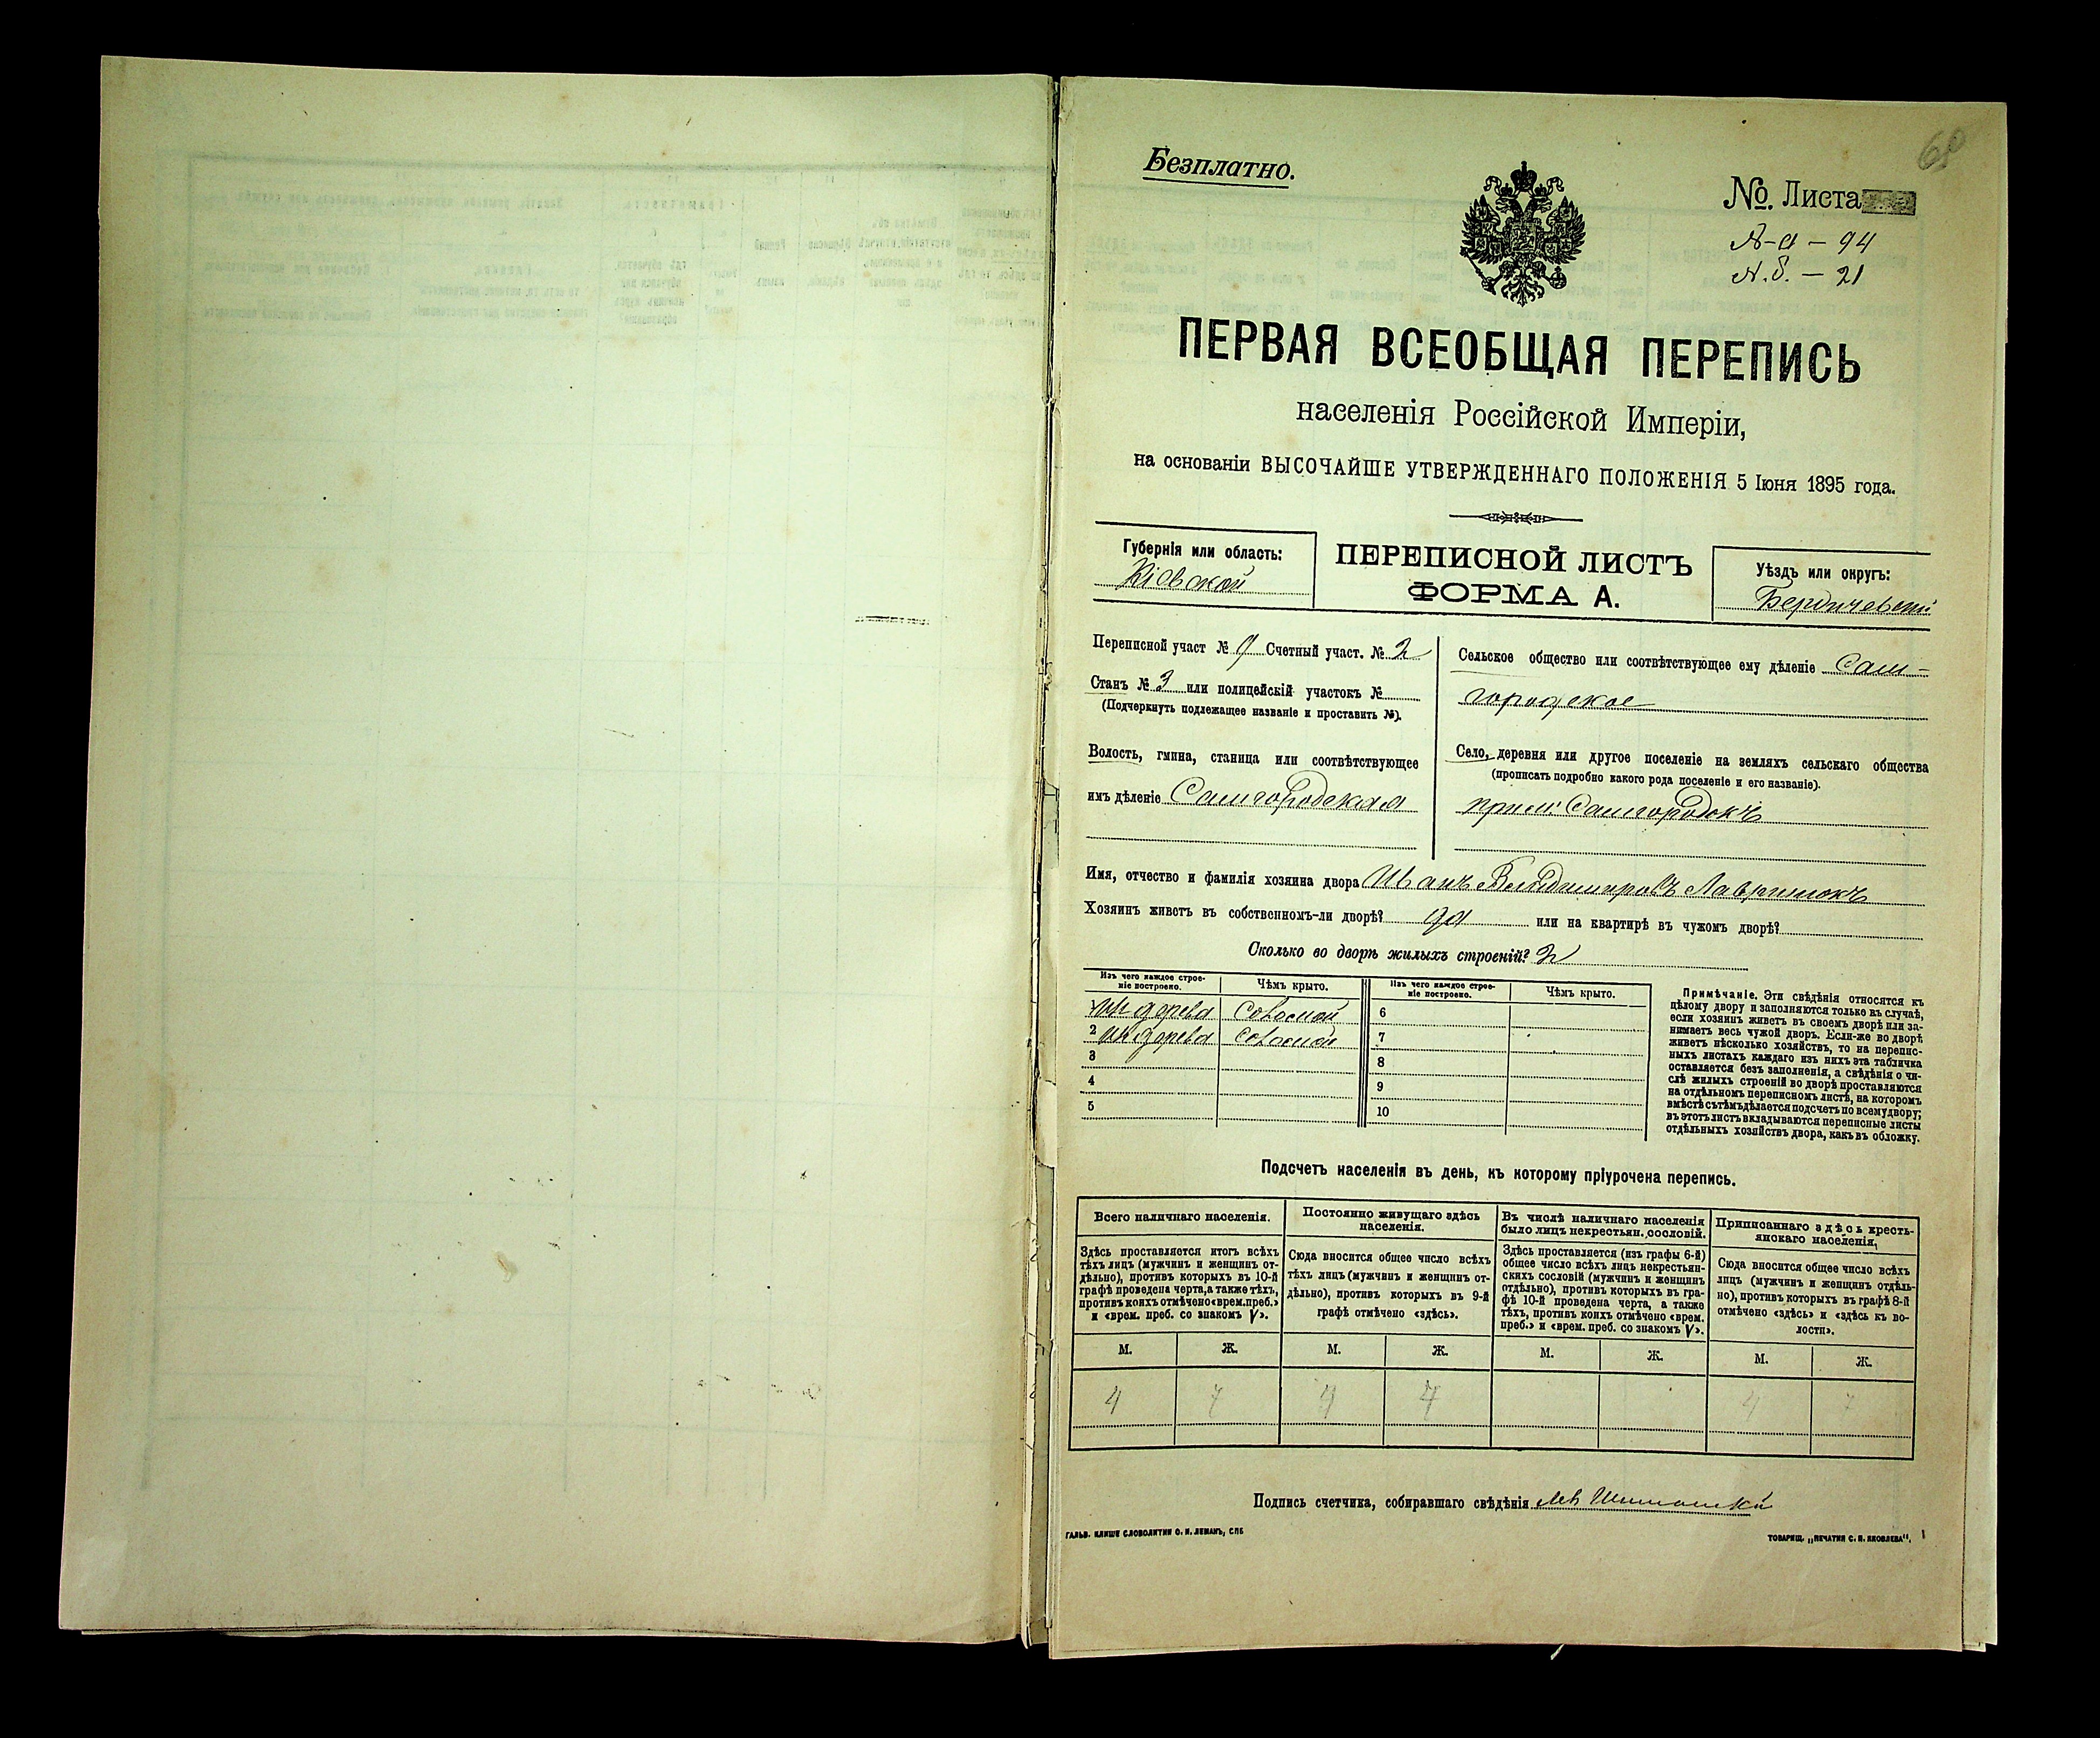 60
Безплатно.
№. Листа
А-а - 94
А.б. - 21
ПЕРВАЯ ВСЕОБЩАЯ ПЕРЕПИСЬ
населенія Россійской Имперіи,
на основаніи ВЫСОЧАЙШЕ УТВЕРЖДЕННАГО ПОЛОЖЕНІЯ 5 Іюня 1895 года.
Губернія или область:
Кіевской
ПЕРЕПИСНОЙ ЛИСТЪ
ФОРМА А.
Уѣздъ или округъ:
Бердичевскій
Переписной участ № 9 Счетный участ. № 2
Станъ № 3 или полицейскій участокъ №
(Подчеркнуть подлежащее названіе и проставить №).
Волость, гмина, станица или соотвѣтствующее
имъ дѣленіе Самгородская
Сельское общество или соотвѣтствующее ему дѣленіе Сам-
городское
Село, деревня или другое поселеніе на земляхъ сельскаго общества
(прописать подробно какого рода поселеніе и его названіе).
Самгородокъ
Имя, отчество и фамилія хозяина двора Иванъ Лавринюкъ
Хозяинъ живетъ въ собственномъ-ли дворѣ? да или на квартирѣ въ чужомъ дворѣ?
Сколько во дворѣ жилыхъ строеній? 2
Изъ чего каждое строе-
ніе построено.
Чѣмъ крыто.
Изъ чего каждое строе-
ніе построено.
Чѣмъ крыто.
1 изъ дерева соломой 6
2 изъ дерева соломой 7
3 8
4 9
5 10
Примѣчаніе. Эти свѣдѣнія относятся къ
цѣлому двору и заполняются только въ случаѣ,
если хозяинъ живетъ въ своемъ дворѣ или за-
нимаетъ весь чужой дворъ. Если-же во дворѣ
живетъ нѣсколько хозяйствъ, то на перепис-
ныхъ листахъ каждаго изъ нихъ эта табличка
оставляется безъ заполненія, а свѣдѣнія о чи-
слѣ жилыхъ строеній во дворѣ проставляются
на отдѣльномъ переписномъ листѣ, на которомъ
вмѣстѣ съ тѣмъ дѣлается подсчетъ по всему двору;
въ этотъ листъ вкладываются переписные листы
отдѣльныхъ хозяйствъ двора, какъ въ обложку.
Подсчетъ населенія въ день, къ которому пріурочена перепись.
Всего наличнаго населенія.
Здѣсь проставляется итогъ всѣхъ
тѣхъ лицъ (мужчинъ и женщинъ от-
дѣльно), противъ которыхъ въ 10-й
графѣ проведена черта, а также тѣхъ,
противъ коихъ отмѣчено «врем. преб.»
и «врем. преб. со знакомъ V».
Постоянно живущаго здѣсь
населенія.
Сюда вносится общее число всѣхъ
тѣхъ лицъ (мужчинъ и женщинъ от-
дѣльно), противъ которыхъ въ 9-й
графѣ отмѣчено «здѣсь».
Въ числѣ наличнаго населенія
было лицъ некрестьян. сословій.
Здѣсь проставляется (изъ графы 6-й)
общее число всѣхъ лицъ некрестьян-
скихъ сословій (мужчинъ и женщинъ
отдѣльно), противъ которыхъ въ гра-
фѣ 10-й проведена черта, а также
тѣхъ, противъ коихъ отмѣчено «врем.
преб.» и «врем. преб. со знакомъ V».
Приписаннаго здѣсь кресть-
янскаго населенія.
Сюда вносится общее число всѣхъ
лицъ (мужчинъ и женщинъ отдѣль-
но), противъ которыхъ въ графѣ 8-й
отмѣчено «здѣсь» и «здѣсь къ во-
лости».
М. Ж. М. Ж. М. Ж. М. Ж.
4 7 4 7 4 7
Подпись счетчика, собиравшаго свѣдѣнія
ГАЛЬВ. КЛИШЕ СЛОВОЛИТНИ О. И. ЛЕМАНЪ, СПБ
ТОВАРИЩ. „ПЕЧАТНЯ С. П. ЯКОВЛЕВА",